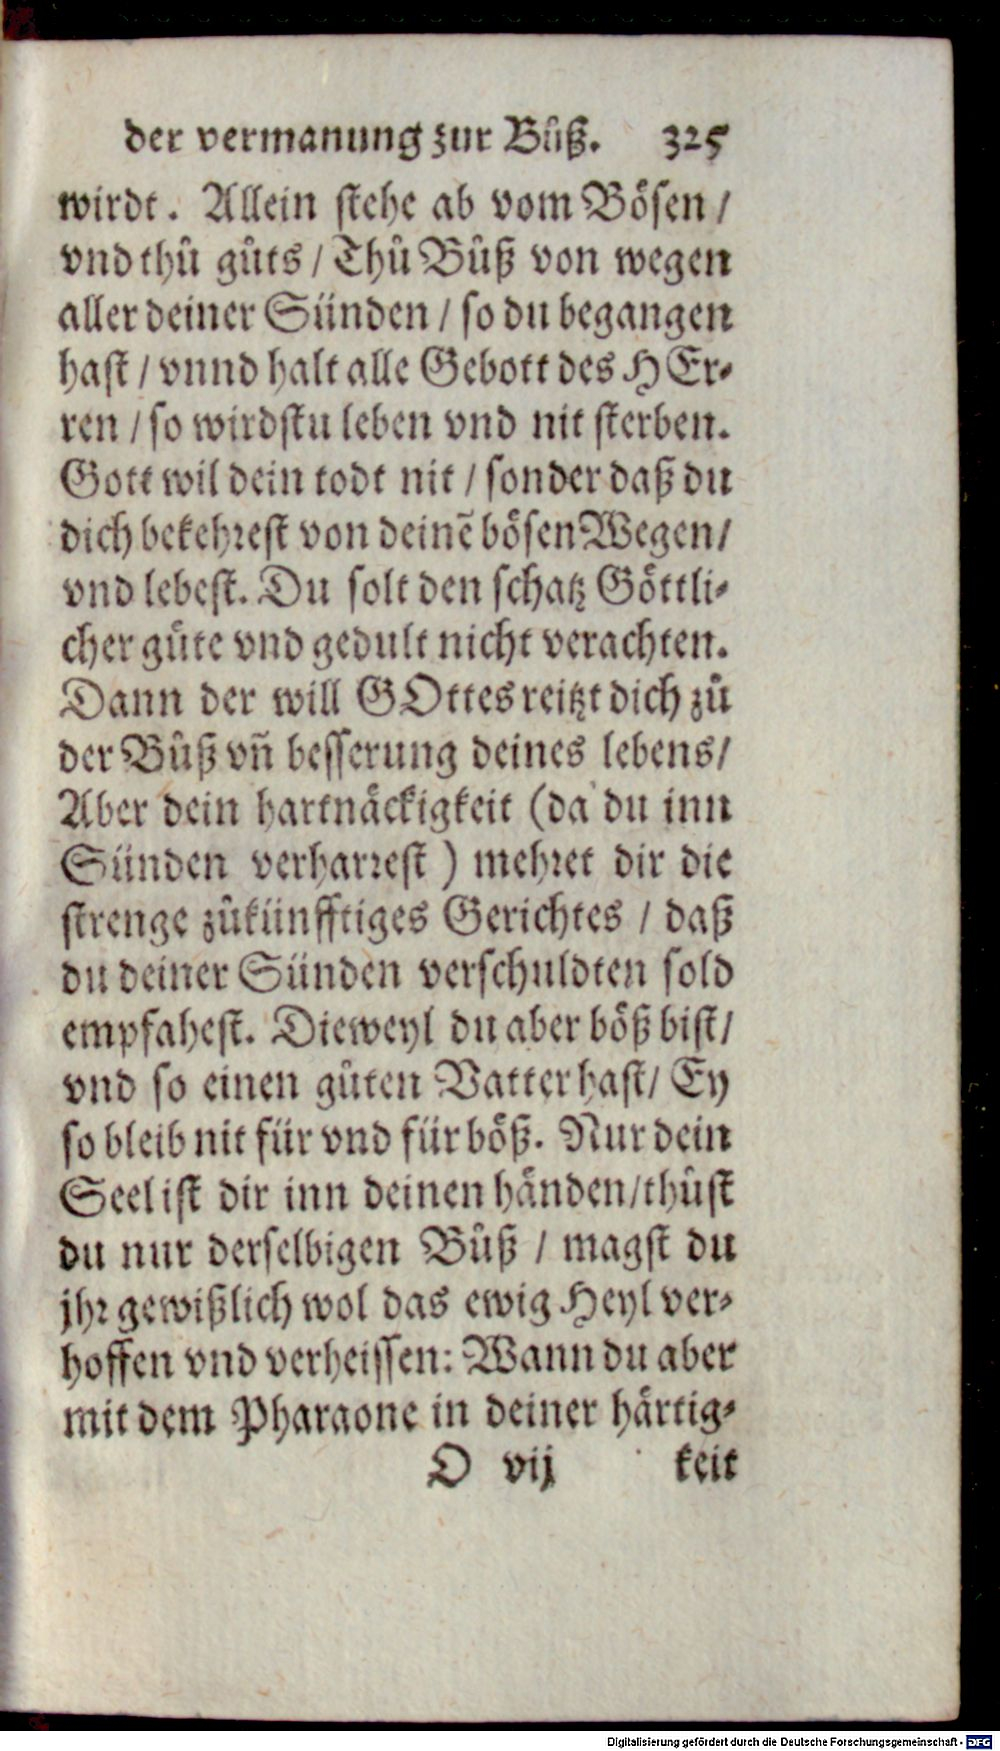 der vermanung zur Bůß. 325
wirdt. Allein stehe ab vom Bösen /
vnd thů gůts / Thů Bůß von wegen
aller deiner Sünden / so du begangen
hast / vnnd halt alle Gebott des HEr-
ren / so wirdstu leben vnd nit sterben.
Gott wil dein todt nit / sonder daß du
dich bekehrest von deinē bösen Wegen /
vnd lebest. Du solt den schatz Göttli-
cher gůte vnd gedult nicht verachten.
Dann der will GOttes reitzt dich zů
der Bůß vñ besserung deines lebens /
Aber dein hartnäckigkeit (da du inn
Sünden verharrest) mehret dir die
strenge zůkünfftiges Gerichtes / daß
du deiner Sünden verschuldten sold
empfahest. Dieweyl du aber böß bist /
vnd so einen gůten Vatter hast / Ey
so bleib nit für vnd für böß. Nur dein
Seel ist dir inn deinen händen / thůst
du nur derselbigen Bůß / magst du
jhr gewißlich wol das ewig Heyl ver-
hoffen vnd verheissen: Wann du aber
mit dem Pharaone in deiner härtig-
O vij keit
Digitalisierung gefördert durch die Deutsche Forschungsgemeinschaft - DFG